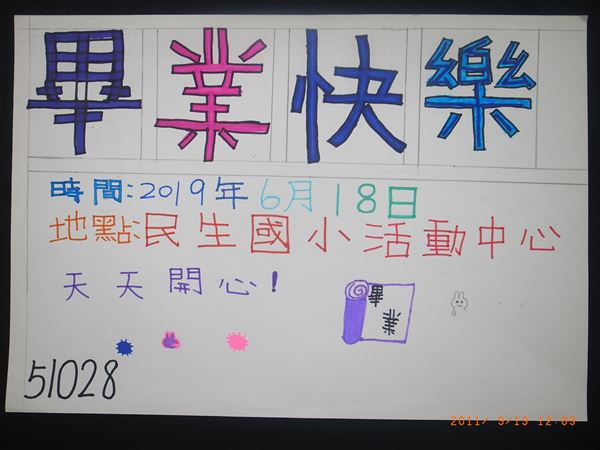 畢業快樂
時間:2019年6月18日
地點:民生國小活動中心
天天開心!
畢業
51028
2011/ 3/13 12:03